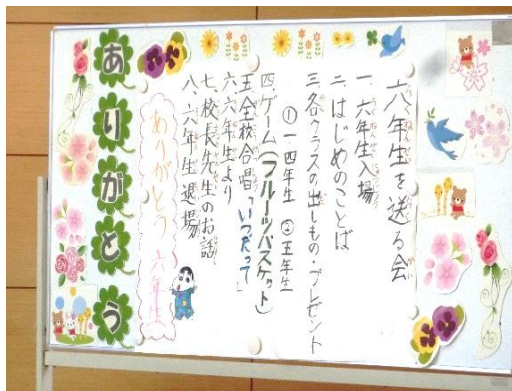 六年生を送る会
一、六年生入場
二、はじめのことば
三、各クラスの出しもの・プレゼント
①一四年生 ②五年生
四、ゲーム(フルーツバスケット)
五、全校合唱「いつだって」
六、六年生より
七、校長先生のお話
八、六年生退場
ありがとう 六年生
ありがとう